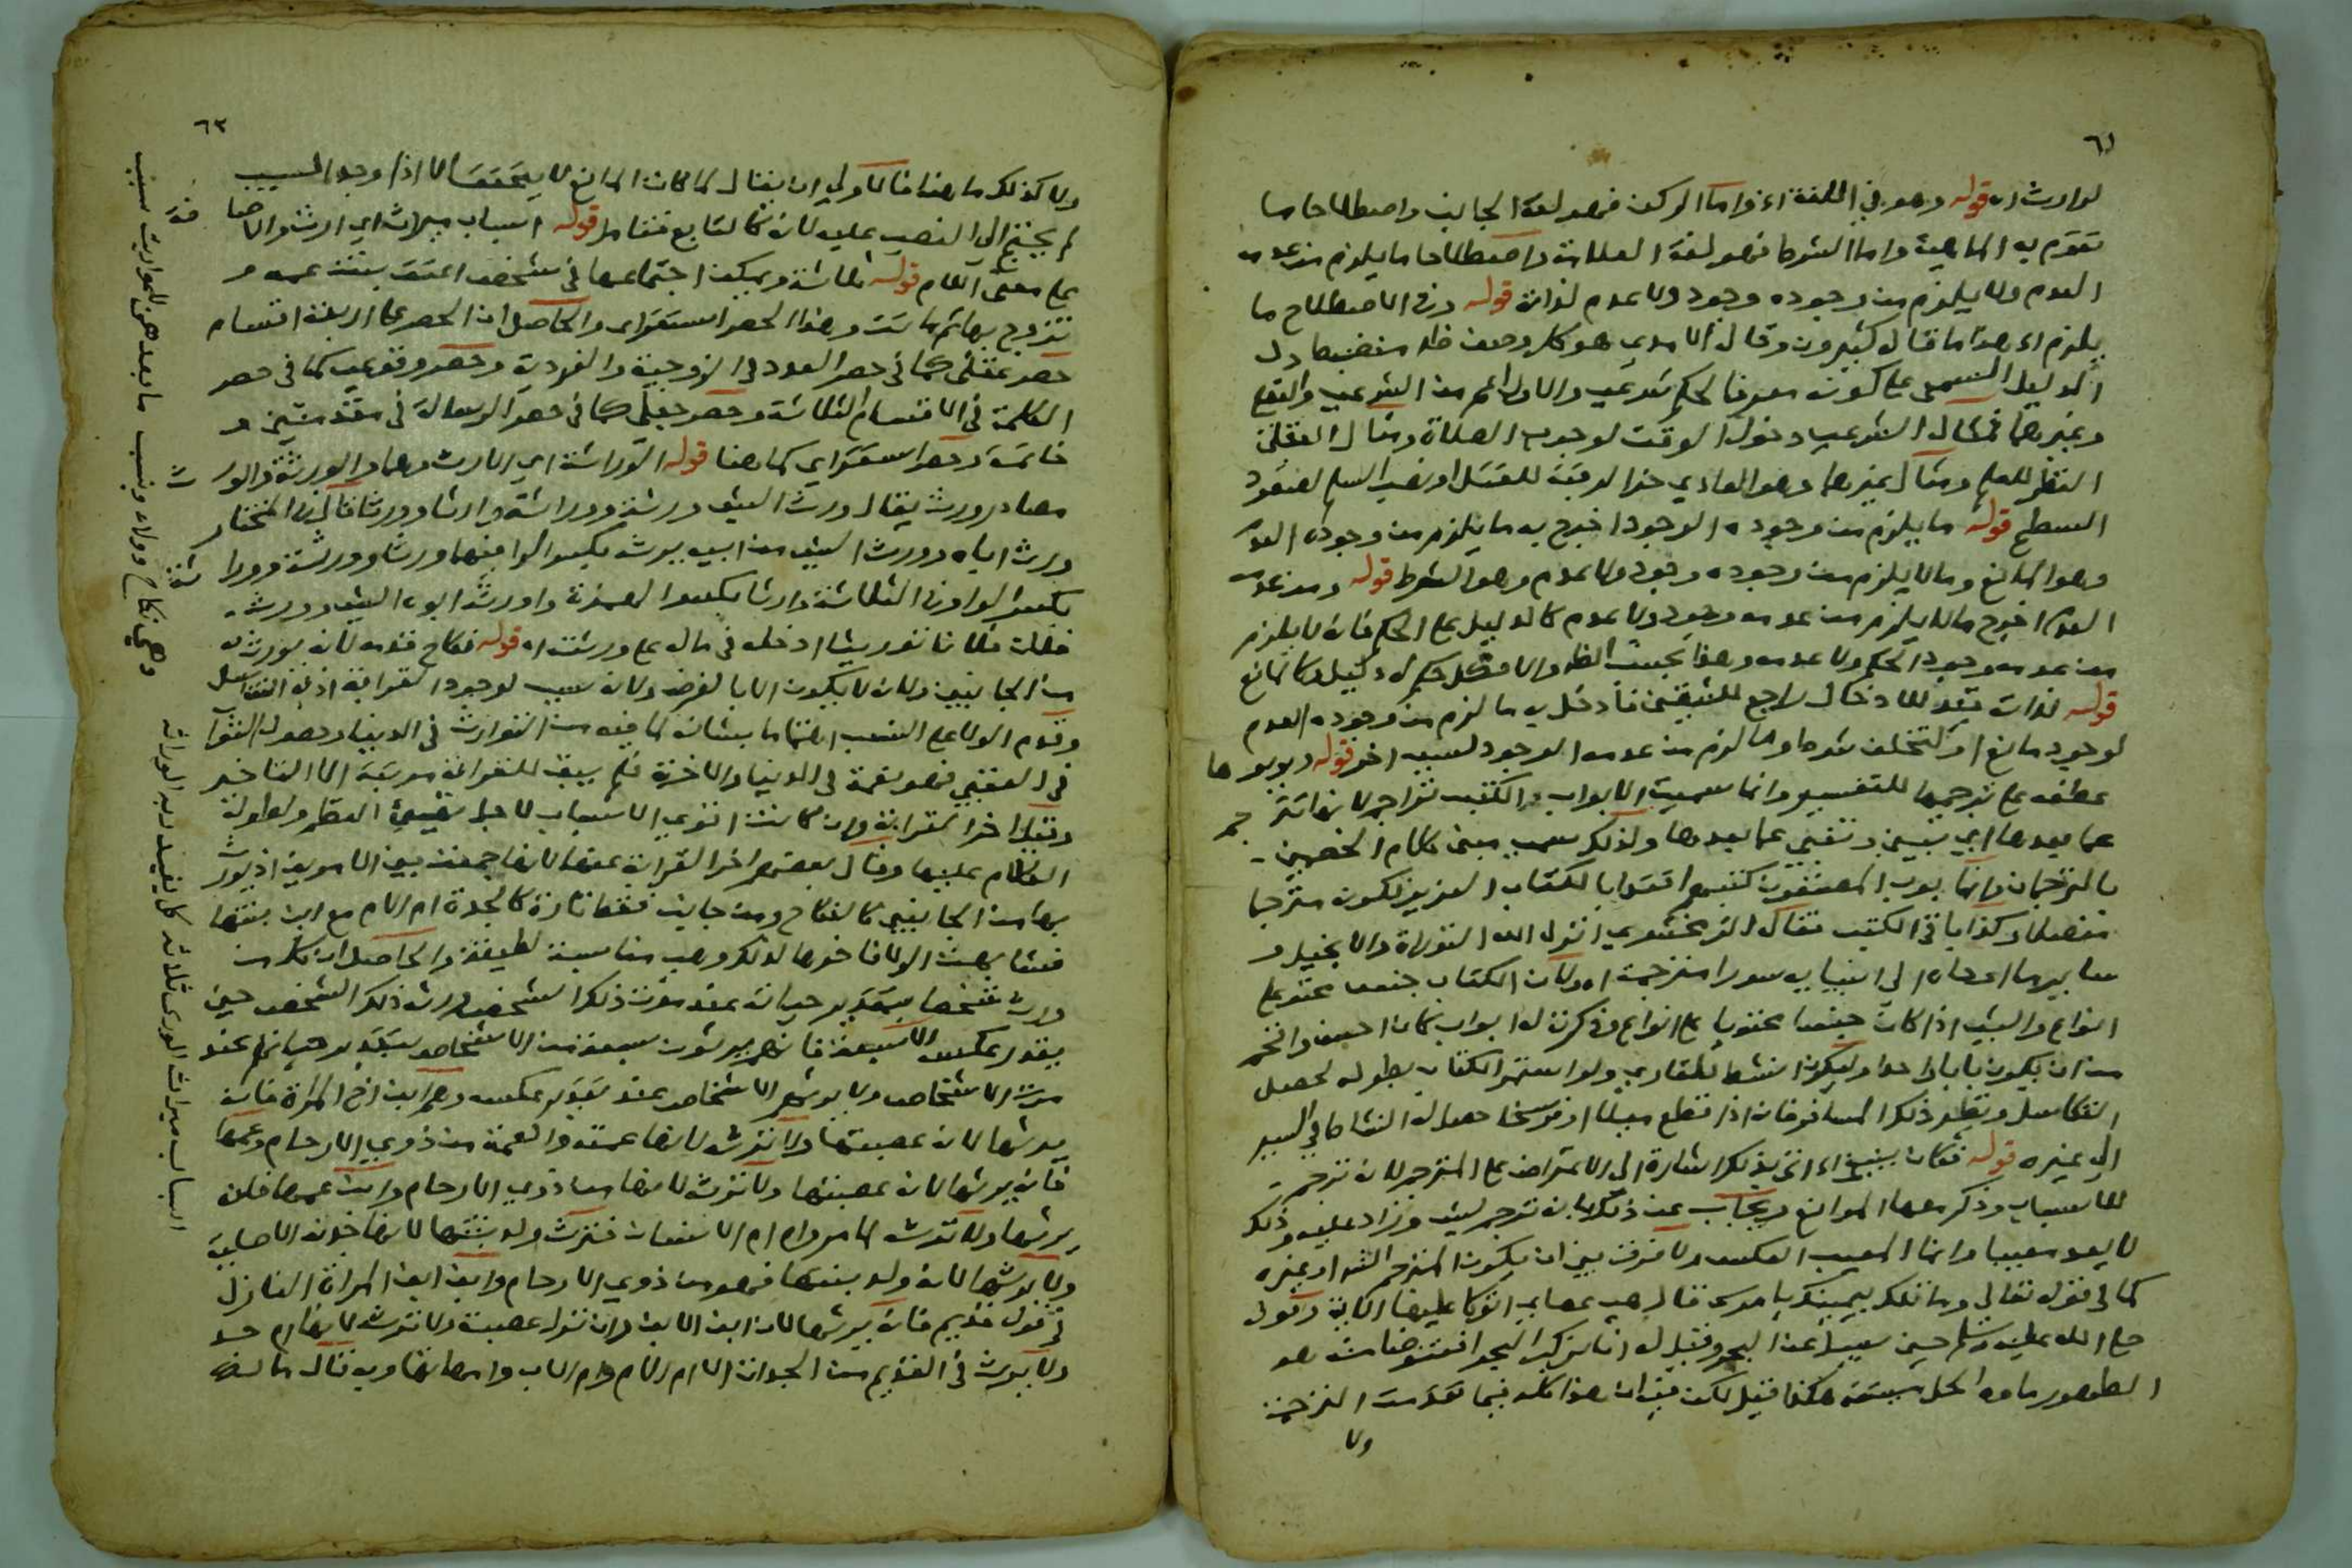 ٦١
لوارث اه قوله وهو في اللغة اه واما الركن فهو لغة الجانب واصطلاحا ما
تقوم به الماهية واما الشرط فهو لغة العلامة واصطلاحا ما يلزم من عدمه
العدم ولا يلزم من وجوده وجود ولا عدم لذاته قوله وفي الاصطلاح ما
يلزم اه هذا ما قال كثيرون وقال الامدي هو كل وصف ظاهر منضبط دل
الدليل السمعي على كونه معرفا لحكم شرعي والاول اعم من الشرعي والعقلي
وغيرهما فمثال الشرعي دخول الوقت لوجوب الصلاة ومثال العقلي
النظر للعلم ومثال غيرهما وهو العادي حز الرقبة للقتل او نصب السلم لصعود
السطح قوله ما يلزم من وجوده الوجود اخرج به ما يلزم من وجوده العدم
وهو المانع وما لا يلزم من وجوده وجود ولا عدم وهو الشرط قوله ومن عدمه
العدم اخرج ما لا يلزم من عدمه وجود ولا عدم كالدليل على الحكم فانه لا يلزم
من عدمه وجود الحكم ولا عدمه وهذا بحسب الظاهر والا فكل حكم له دليل
قوله لذاته قيد للادخال راجع للشقين فادخل به ما لزم من وجوده العدم
لوجود مانع او لتخلف شرط وما لزم من عدمه الوجود لسبب اخر قوله وبوبوها
عطف على ترجموها للتفسير وانما سميت الابواب والكتب تراجم لانها تترجم
عما بعدها اي تبين وتنبي عما بعدها ولذلك سمي مبين كلام الخصمين
بالترجمان وانما بوب المصنفون كتبهم اقتداء بالكتاب العزيز لكونه مترجما
مفصلا وكذا باقي الكتب فقال الزمخشري انزل الله التوراة والانجيل و
ساير ما اوحاه الى انبيايه سورا مترجمة اه ولان الكتاب جنس محتو على
انواع والشي اذا كان جنسا محتويا على انواع وذكرت له ابواب كان احسن وافخم
من ان يكون بابا واحدا وليكون انشط للقاري ولو استمر الكتاب بطوله لحصل
التكاسل ونظير ذلك المسافر فانه اذا قطع ميلا او فرسخا حصل له النشاط في السير
الى غيره قوله فكان ينبغي اه اتى بذلك اشارة الى الاعتراض على المترجم لانه ترجم
للاسباب وذكر معها الموانع ويجاب عن ذلك بان من ترجم لشي وزاد عليه فذلك
لا يعد معيبا وانما المعيب العكس ولا فرق بين ان يكون المترجم الله او غيره
كما في قوله تعالى وما تلك بيمينك يا موسى قال هي عصاي اتوكا عليها الآية وقوله
صلى الله عليه وسلم حين سئل عن البحر وقيل له انا نركب البحر افنتوضا منه هو
الطهور ماوه الحل ميتته هكذا قيل لكن فيه ان هذا كله فيما تقدمت الترجمة
ولا
٦٢
ولا كذلك ما هنا فالاولى ان يقال لما كان المانع لا يتحقق الا اذا وجد السبب
لم يحتج الى النص عليه لانه كالتابع فتامل قوله اسباب ميراث اي ارث والاضافة
على معنى اللام قوله ثلاثة ويمكن اجتماعها في شخص اعتق بنت عمه و
تزوج بها ثم ماتت وهذا الحصر استقراي والحاصل ان الحصر على اربعة اقسام
حصر عقلي كما في حصر العدد في الزوجية والفردية وحصر وقوعي كما في حصر
الكلمة في الاقسام الثلاثة وحصر جعلي كما في حصر الرسالة في مقدمتين و
خاتمة وحصر استقراي كما هنا قوله الوراثة اي الارث وهما والورثة والوارث
مصادر ورث يقال ورث الشي ورثة ووراثة وارثا وورثا قال في المختار
ورث اباه وورث الشي من ابيه يرث بكسر الرا فيهما ورثا وورثة ووراثة
بكسر الواو في الثلاثة وارثا بكسر الهمزة واورثه ابوه الشي وورث
فلان فلانا توريثا ادخله في مال على ورثته اه قوله نكاح قدمه لانه يورث به
من الجانبين ولانه لا يكون الا بالفرض ولانه سبب لوجود القرابة اذ به التناسل
وقدم الولا على النسب اهتماما بشانه لما فيه من التوارث في الدنيا وحصول الثواب
في العقبى فهو نعمة في الدنيا والاخرة فلم يبق للقرابة مرتبة الا التاخير
وقيل اخر القرابة وان كانت اقوى الاسباب لاجل النظم ولطول
الكلام عليها وقال بعضهم اخر القرابة عنهما لانها جمعت بين الامرين اذ يورث
بها من الجانبين كالنكاح ومن جانب فقط تارة كالجدة ام الام مع ابن بنتها
فشابهت الولا فاخرها لذلك وهي مناسبة لطيفة والحاصل ان كل من
ورث شخصا بتقدير حياته عند موت ذلك الشخص ورثه ذلك الشخص حين
يقدر عكسه الا سبعة فانهم يرثون سبعة من الاشخاص بتقدير حياتهم عند
موت الاشخاص ولا يرثهم الاشخاص عند تقدير عكسه وهم ابن اخ المراة فانه
يرثها لانه عصبتها ولا ترثه لانها عمته والعمة من ذوي الارحام وعمها
فانه يرثها لانه عصبتها ولا ترثه لانها من ذوي الارحام وابن عمها فانه
يرثها ولا ترثه لما مر وام ام الانسان فترث ولد بنتها لانها اصلية
ولا يرثها لانه ولد بنتها فهو من ذوي الارحام وابن ابن المراة النازل
في قول قديم فانه يرثها لانه ابن الابن وان نزل عصبة ولا ترثه لانها ام جد
ولا يرث في القديم من الجدات الا ام الام وام الاب وامهاتهما وبه قال مالك
وهي نكاح وولاء ونسب ما بعدهن للمواريث سبب
اسباب ميراث الورى ثلاثة كل يفيد ربه الوراثة